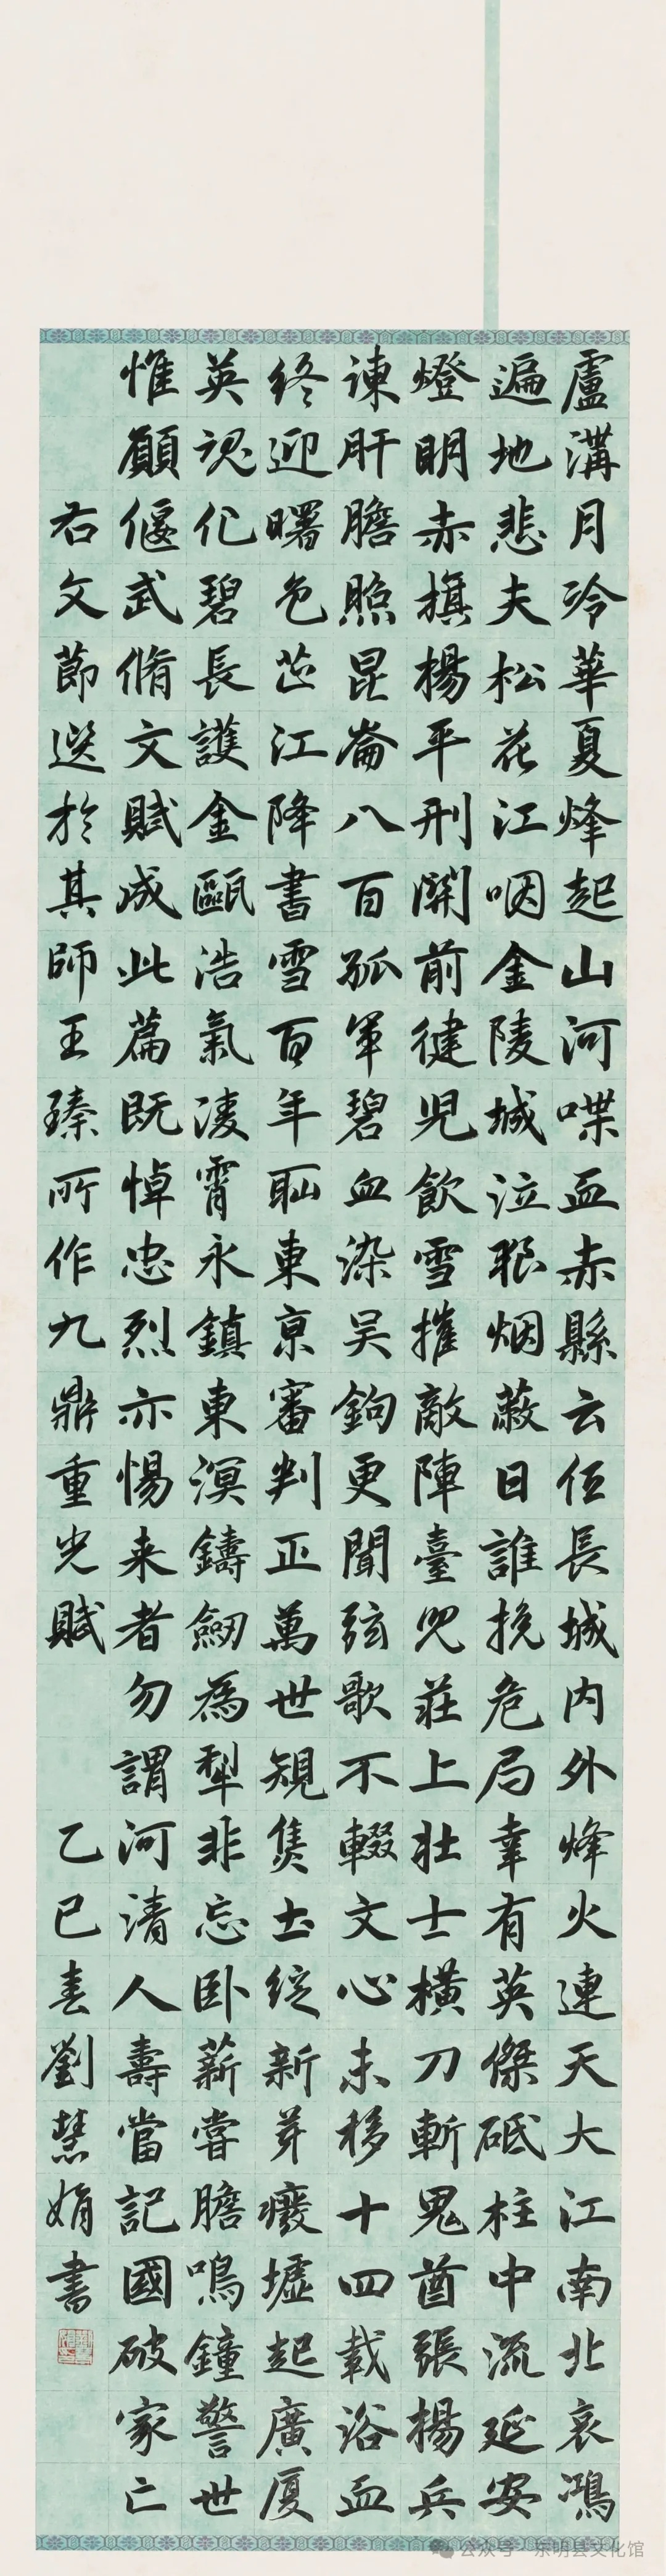 盧溝月冷華夏烽起山河喋血赤縣云伍長城内外烽火連天大江南北哀鴻
遍地悲夫松花江咽金陵城泣狼烟蔽日誰挽危局幸有英傑砥柱中流延安
燈明赤旗揚平刑關前健兒飲雪摧敵陣臺兒莊上壯士横刀斬鬼酋張揚兵
諫肝膽照昆崙八百孤軍碧血染吴鉤更聞弦歌不輟文心未移十四載浴血
終迎曙色芷江降書雪百年恥東京審判正萬世規焦土綻新芽癈墟起廣厦
英魂化碧長護金甌浩氣凌霄永鎮東溟鑄劒為犁非忘卧薪嘗膽鳴鐘警世
惟願偃武脩文賦成此篇既悼忠烈亦惕来者勿謂河清人壽當記國破家亡
右文節選於其師王臻所作九鼎重光賦 乙巳春劉慧娟書
公众号·东明县文化馆